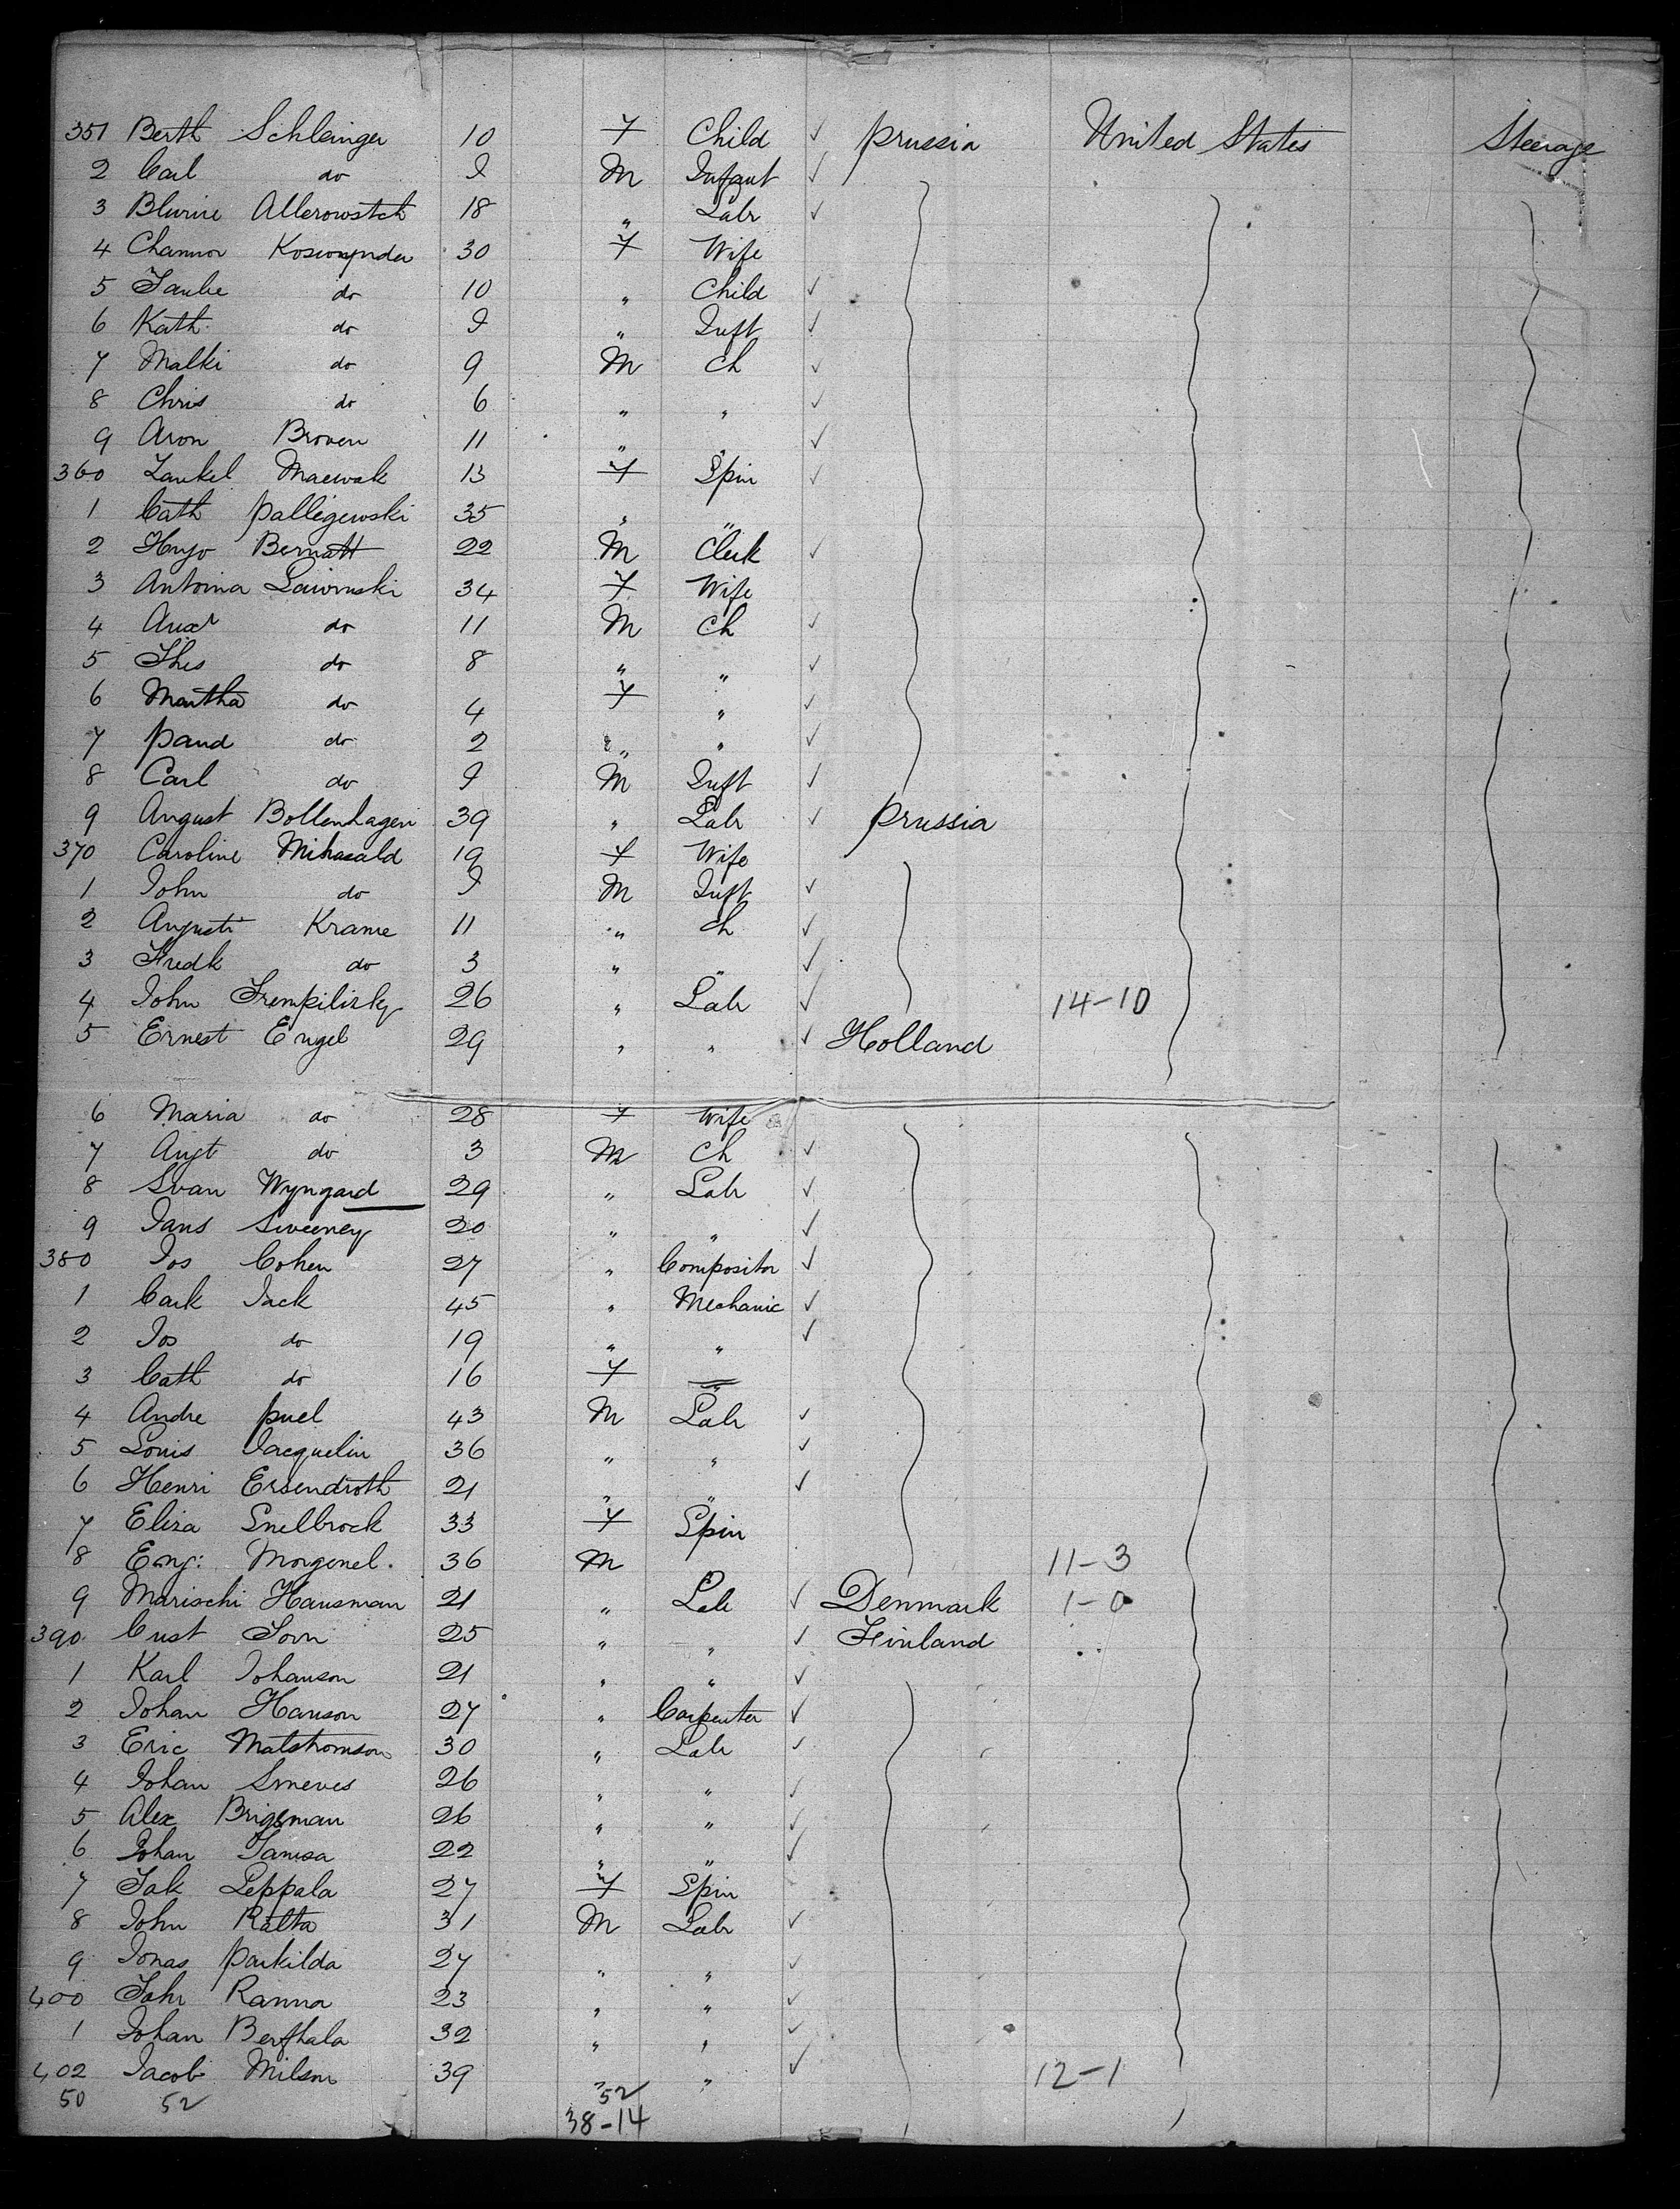 351 Berth Schleinger 10 F Child ✓ Prussia United States Steerage
2 Carl do I M Infant ✓
3 Blurine Allerowstch 18 " Labr ✓
4 Channor 30 F Wife
5 Taube do 10 " Child ✓
6 Kath. do I " Inft ✓
7 Malki do 9 M Ch ✓
8 Chris do 6 " " ✓
9 Aron Broven 11 " " ✓
360 Zankel Maewak 13 F Spin ✓
1 Cath Palligewski 35 " "
2 Hugo Bernatt 22 M Clerk ✓
3 Antonia Lawinski 34 F Wife
4 do 11 M Ch ✓
5 Thes do 8 " " ✓
6 Martha do 4 F " ✓
7 Paud do 2 " " ✓
8 Carl do I M Inft ✓
9 August Bollenhagen 39 " Labr ✓ Prussia
370 Caroline Mihasald 19 F Wife
1 John do I M Inft ✓
2 August Krame 11 " Ch ✓
3 Fredk do 3 " " ✓
4 John Trempilisky 26 " Labr ✓ 14-10
5 Ernest Engel 29 " " ✓ Holland
6 Maria do 28 F Wife
7 Augt do 3 M Ch ✓
8 Svan Wyngard 29 " Labr ✓
9 Jans Sweeney 20 " " ✓
380 Jos Cohen 27 " Compositor ✓
1 Cark Jack 45 " Mechanic ✓
2 Jos do 19 " " ✓
3 Cath do 16 F "
4 Andre Puel 43 M Labr ✓
5 Louis Jacquelin 36 " " ✓
6 Henri Ersendroth 21 " " ✓
7 Eliza Snelbrock 33 F Spin
8 Eng: Morgenel. 36 M 11-3
9 Marischi Hausman 21 " Lab ✓ Denmark 1-0
390 Cust Sorn 25 " " ✓ Finland
1 Karl Johanson 21 " " ✓
2 Johan Hanson 27 " Carpenter ✓
3 Eric Matshomson 30 " Labr ✓
4 Johan Smeves 26 " " ✓
5 Alex Brigsman 26 " " ✓
6 Johan Tamsa 22 " " ✓
7 Jak Leppala 27 F Spin
8 John Ratta 31 M Labr ✓
9 Jonas Parkilda 27 " " ✓
400 Johi Ranna 23 " " ✓
1 Johan Berfhala 32 " " ✓
402 Jacob Milson 39 " " ✓ 12-1
50 52 52
38-14